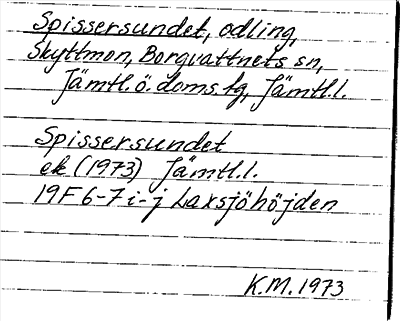 Spissersundet, odling,
Skyttmon, Borgvattnets sn,
Jämtl.ö. doms.fg, Jämtl.l.
Spissersundet
ek (1973) Jämtl.l.
19F 6-7 i-j Laxsjöhöjden
K.M. 1973